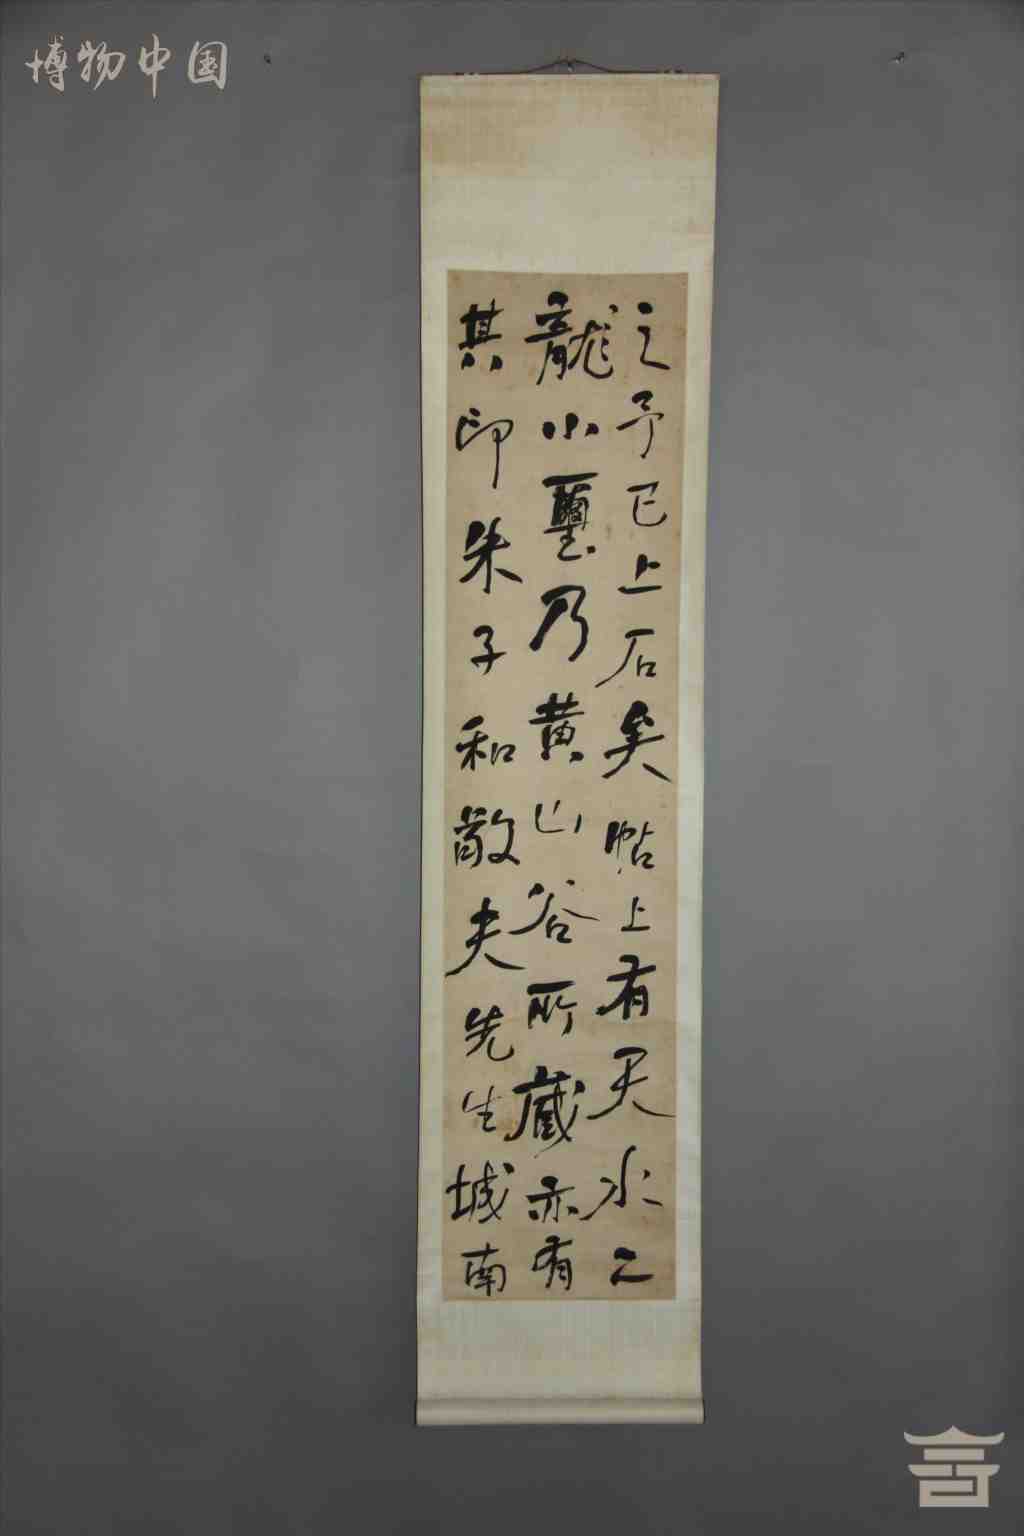 博物中国
之予已上石矣帖上有天水二
龍小璽乃黄山谷所藏亦有
其印朱子和敬夫先生城南